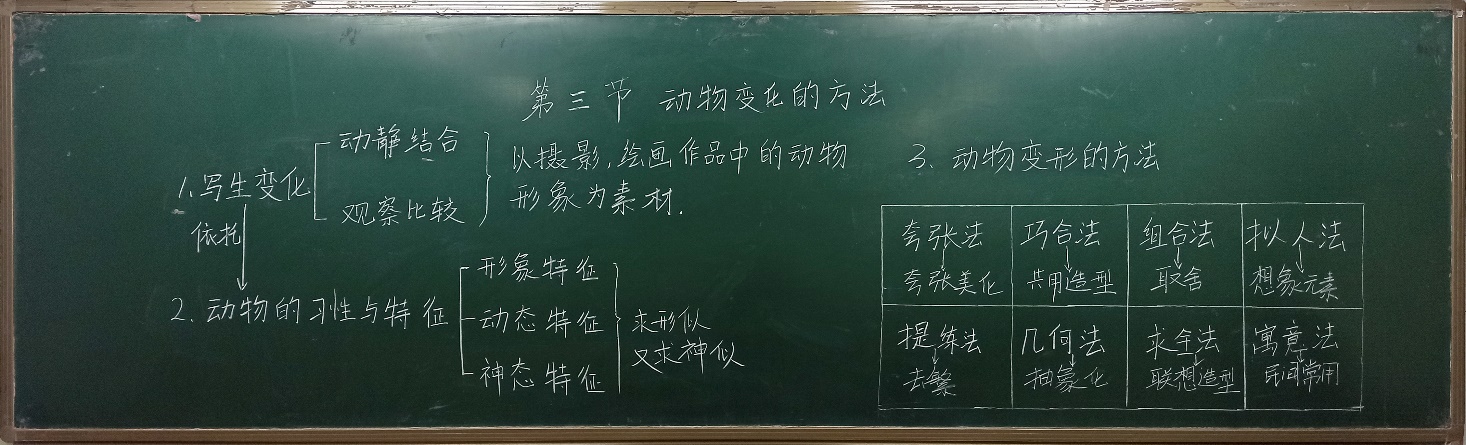 第三节 动物变化的方法
1.写生变化
动静结合
观察比较
以摄影,绘画作品中的动物
形象为素材.
依托
2.动物的习性与特征
形象特征
动态特征
神态特征
求形似
又求神似
3.动物变形的方法
夸张法 巧合法 组合法 拟人法
夸张美化 共用造型 取舍 想象元素
提练法 几何法 求全法 寓意法
去繁 抽象化 联想造型 民间常用